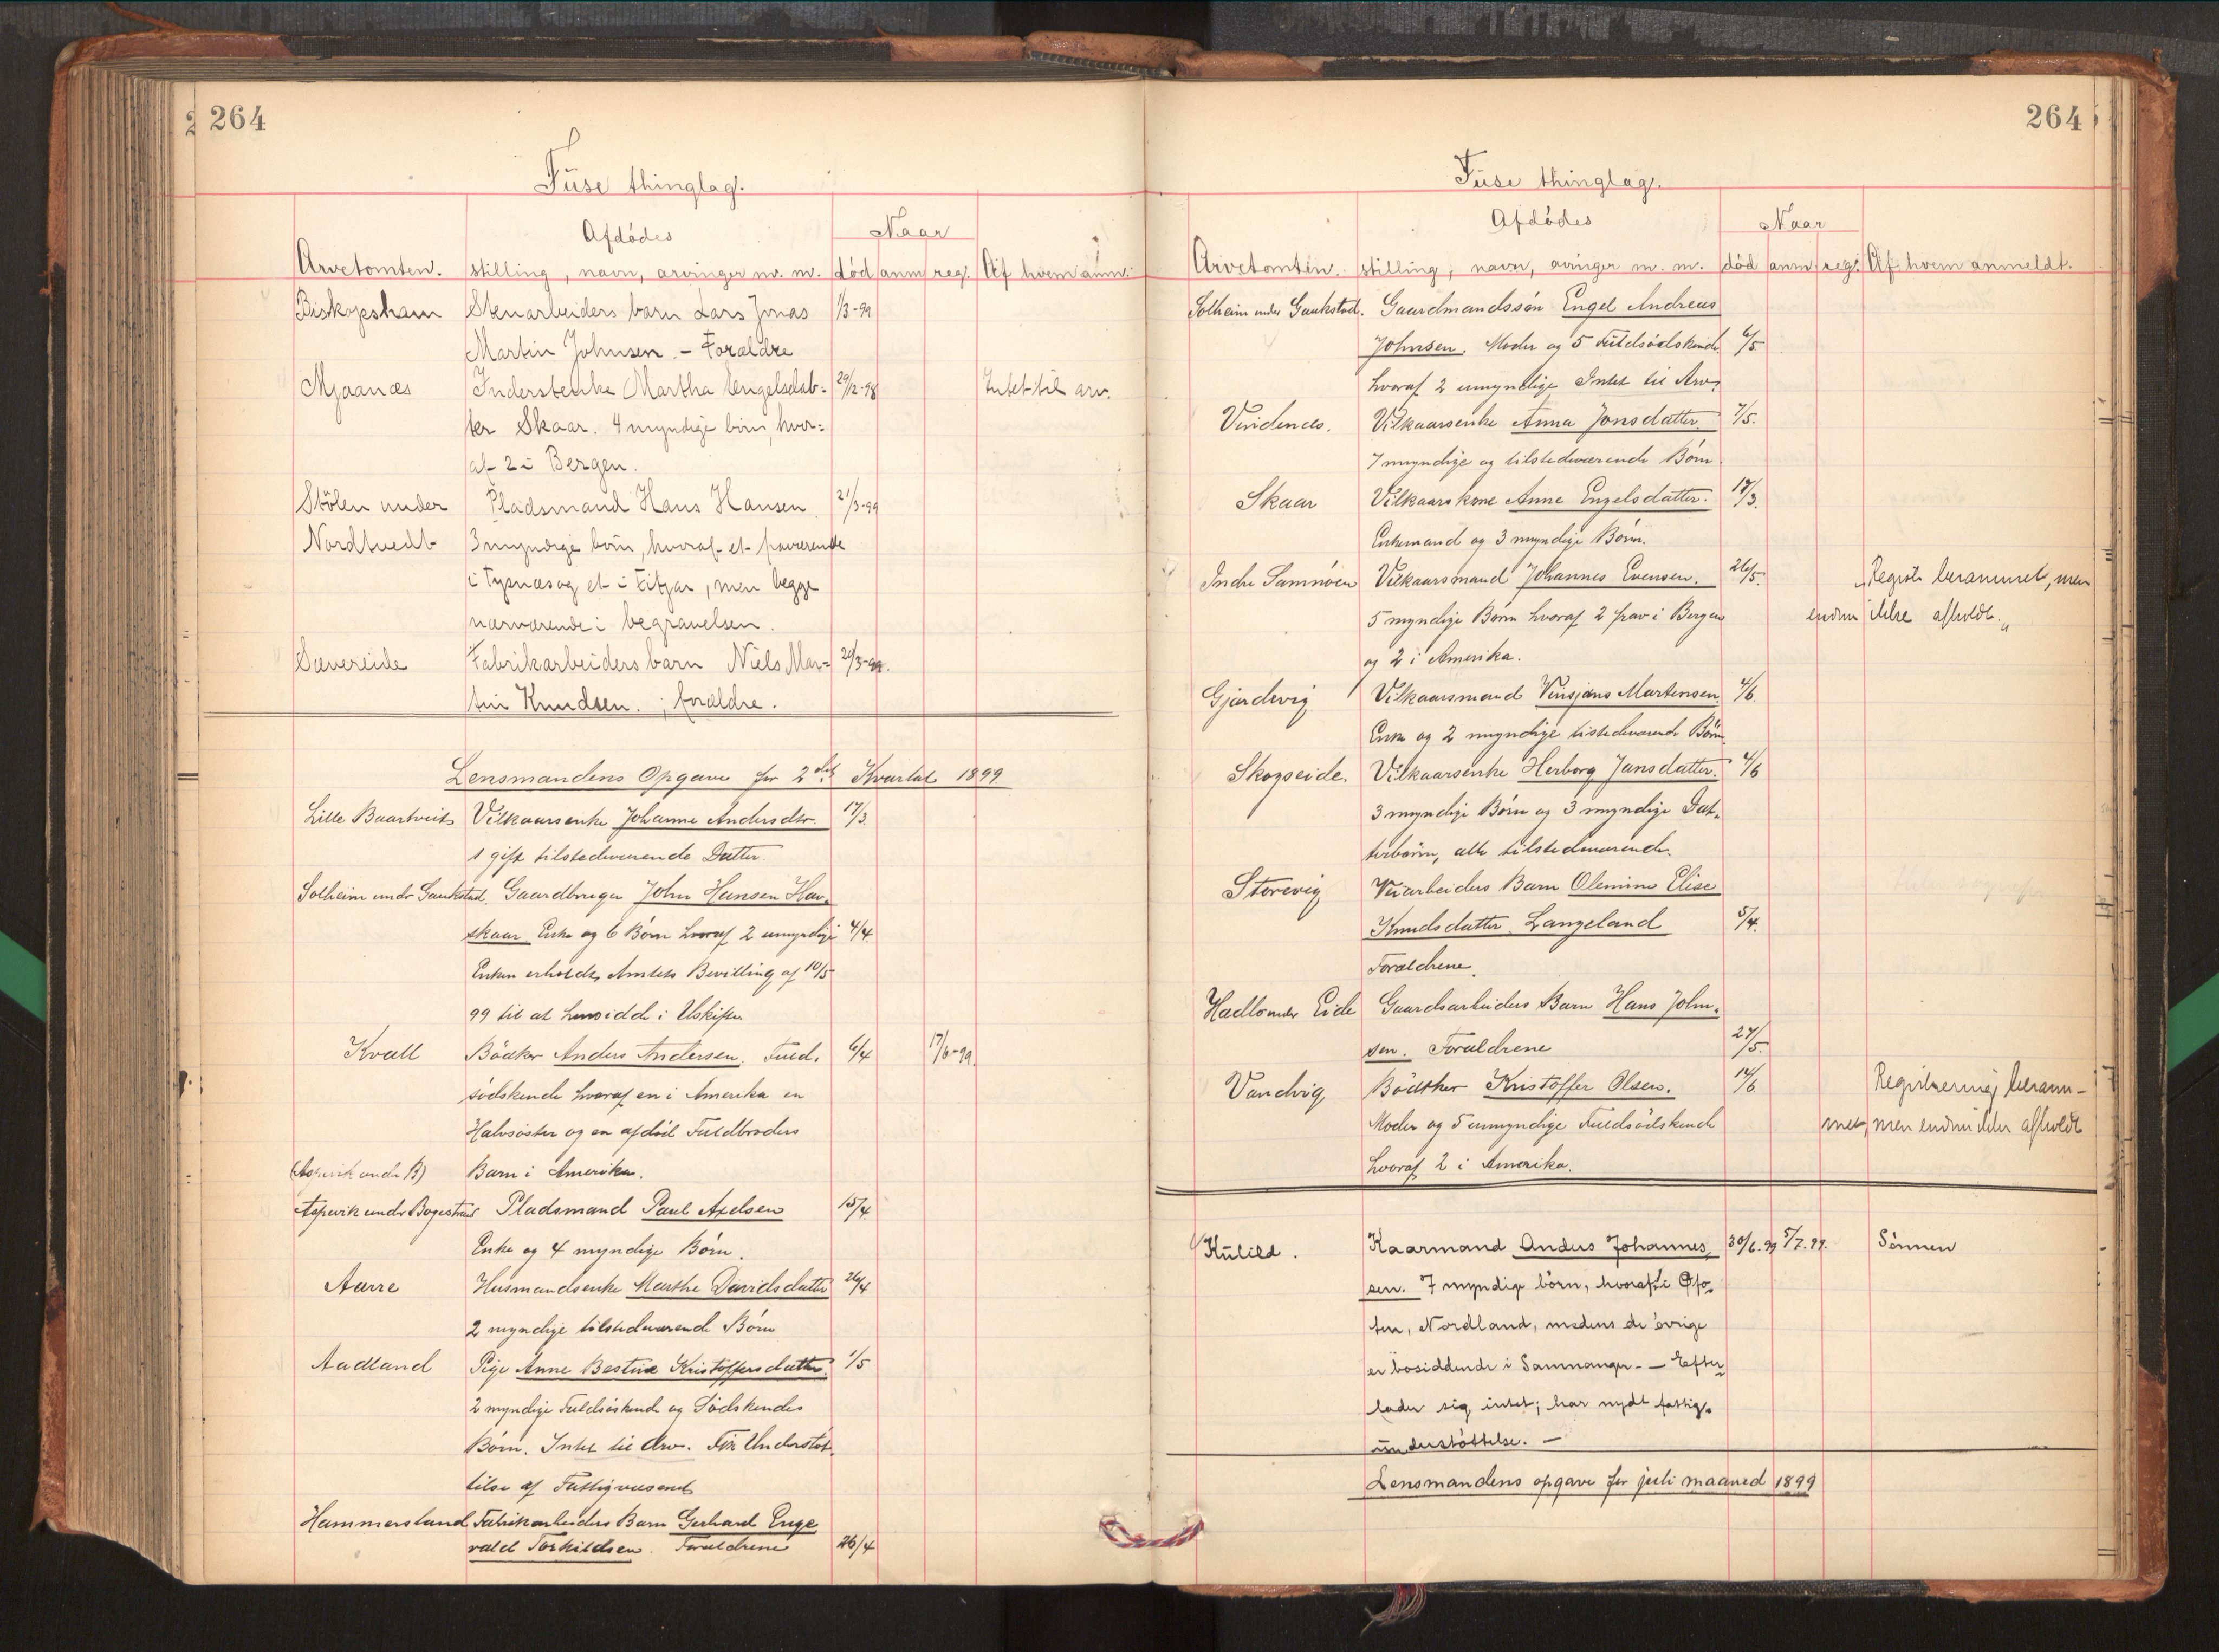 264
Fuse thinglag.
Afdödes
Naar
Arvetomten. stilling, navn, arvinger m. m. död anm reg. Af hvem anm.
Biskopsham Stenarbeiders barn Lars Jonas 1/3-99
Martin Johnsen. - Forældre
Mjaanæs Inderstenke Martha Engelsdat- 29/12-98 Intet til arv.
ter Skaar. 4 myndige börn, hvor-
af 2 i Bergen.
Stölen under Pladsmand Hans Hansen 21/3-99
Nordtvedt 3 myndige börn, hvoraf et fraværende
i Tysnæs og et i Fitjar, men begge
nærværende i begravelsen.
Sævereide Fabrikarbeiders barn Niels Mar- 29/3-99.
tin Knudsen. ; forældre.
Lensmandens Opgave for 2det Kvartal 1899
Lille Baartveit Vilkaarsenke Johanne Andersdtr. 17/3.
1 gift tilstedeværende Datter.
Solheim under Gaukstad. Gaardbruger John Hansen Hav-
skaar Enke og 6 Börn hvoraf 2 umyndige 4/4.
Enken erholdt Amtets Bevilling af 10/5
99 til at hensidde i Uskiftet
Kvall Bödker Anders Andersen. Fuld- 6/4 17/6-99.
södskende hvoraf en i Amerika en
Halvsöster og en afdöd Fuldbroders
(Aspevik under B) Barn i Amerika.
Aspevik under Bogestrand Pladsmand Paul Axelsen 15/4.
Enke og 4 myndige Börn.
Aarre Husmandsenke Marthe Davidsdatter 26/4
2 myndige tilstedeværende Börn
Aadland Pige Anne Bastine Kristoffersdatter. 1/5
2 myndige Fuldsöskende og Södskendes
Börn. Intet til Arv. Fik Understöt-
telse af Fattigvæsenet
Hammersland Fabrikarbeiders Barn Gerhard Enge
vald Torkildsen. Forældrene 26/4
264
Fuse thinglag.
Afdödes
Naar
Arvetomten. stilling, navn, arvinger m. m. död anm reg. Af hvem anmeldt.
Solheim under Gaukstad. Gaardmandssön Engel Andreas
Johnsen. Moder og 5 Fuldsödskende 6/5
hvoraf 2 umyndige Intet til Arv.
Vindenes. Vilkaarsenke Anna Jonsdatter. 7/5.
7 myndige og tilstedeværende Börn.
Skaar Vilkaarskone Anne Engelsdatter. 17/3.
Enkemand og 3 myndige Börn.
Indre Samnöen Vilkaarsmand Johannes Evensen. 26/5. "Registr. berammet, men
5 myndige Börn hvoraf 2 frav i Bergen endnu ikke afholdt."
og 2 i Amerika.
Gjærdevig Vilkaarsmand Vinsjans Martensen. 4/6.
Enke og 2 myndige tilstedeværende Börn.
Skogseide. Vilkaarsenke Herborg Jansdatter. 4/6
3 myndige Börn og 3 myndige Dat-
terbörn, alle tilstedeværende.
Storevig Veiarbeiders Barn Olemine Elise
Knudsdatter Langeland 5/4.
Forældrene.
Hadlo under Eide Gaardsarbeiders Barn Hans John-
sen. Forældrene 27/5.
Vandvig Bödtker Kristoffer Olsen. 14/6. Registrering beram-
Moder og 5 umyndige Fuldsödskende met, men endnu ikke afholdt
hvoraf 2 i Amerika.
Kulild. Kaarmand Anders Johannes- 30/6.99 5/7.99. Sönnen
sen. 7 myndige börn, hvoraf 1 i Ofo-
ten, Nordland, medens de övrige
er bosiddende i Samnanger. - Efter-
lader sig intet; har nydt fattig-
understöttelse. -
Lensmandens opgave for juli maaned 1899